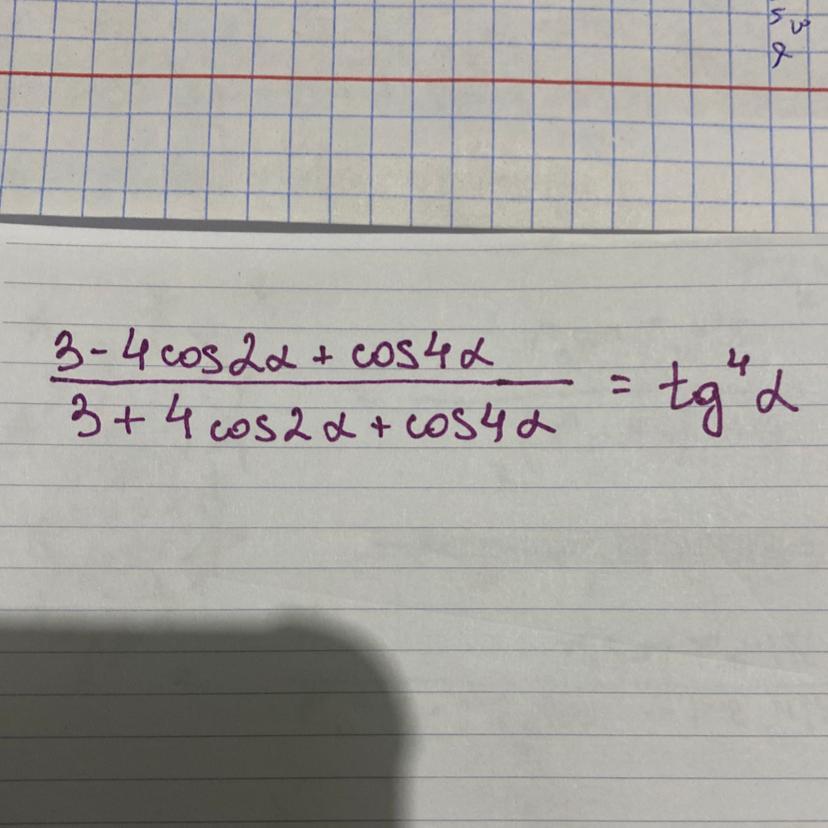 3 - 4 cos 2α + cos 4α
3 + 4 cos 2α + cos 4α
= tg⁴ α